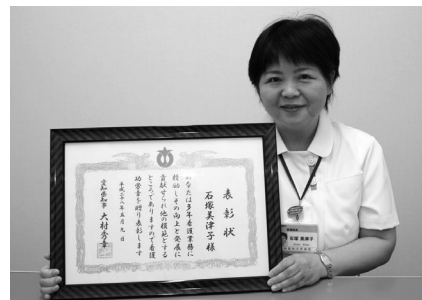 表彰状
石塚美津子様
あなたは多年看護業務に
精励しその向上と発展に
貢献せられ他の模範とする
ところでありますので看護
功労章を贈り表彰します
平成二十八年五月九日
愛知県知事 大村秀章
石塚 美津子